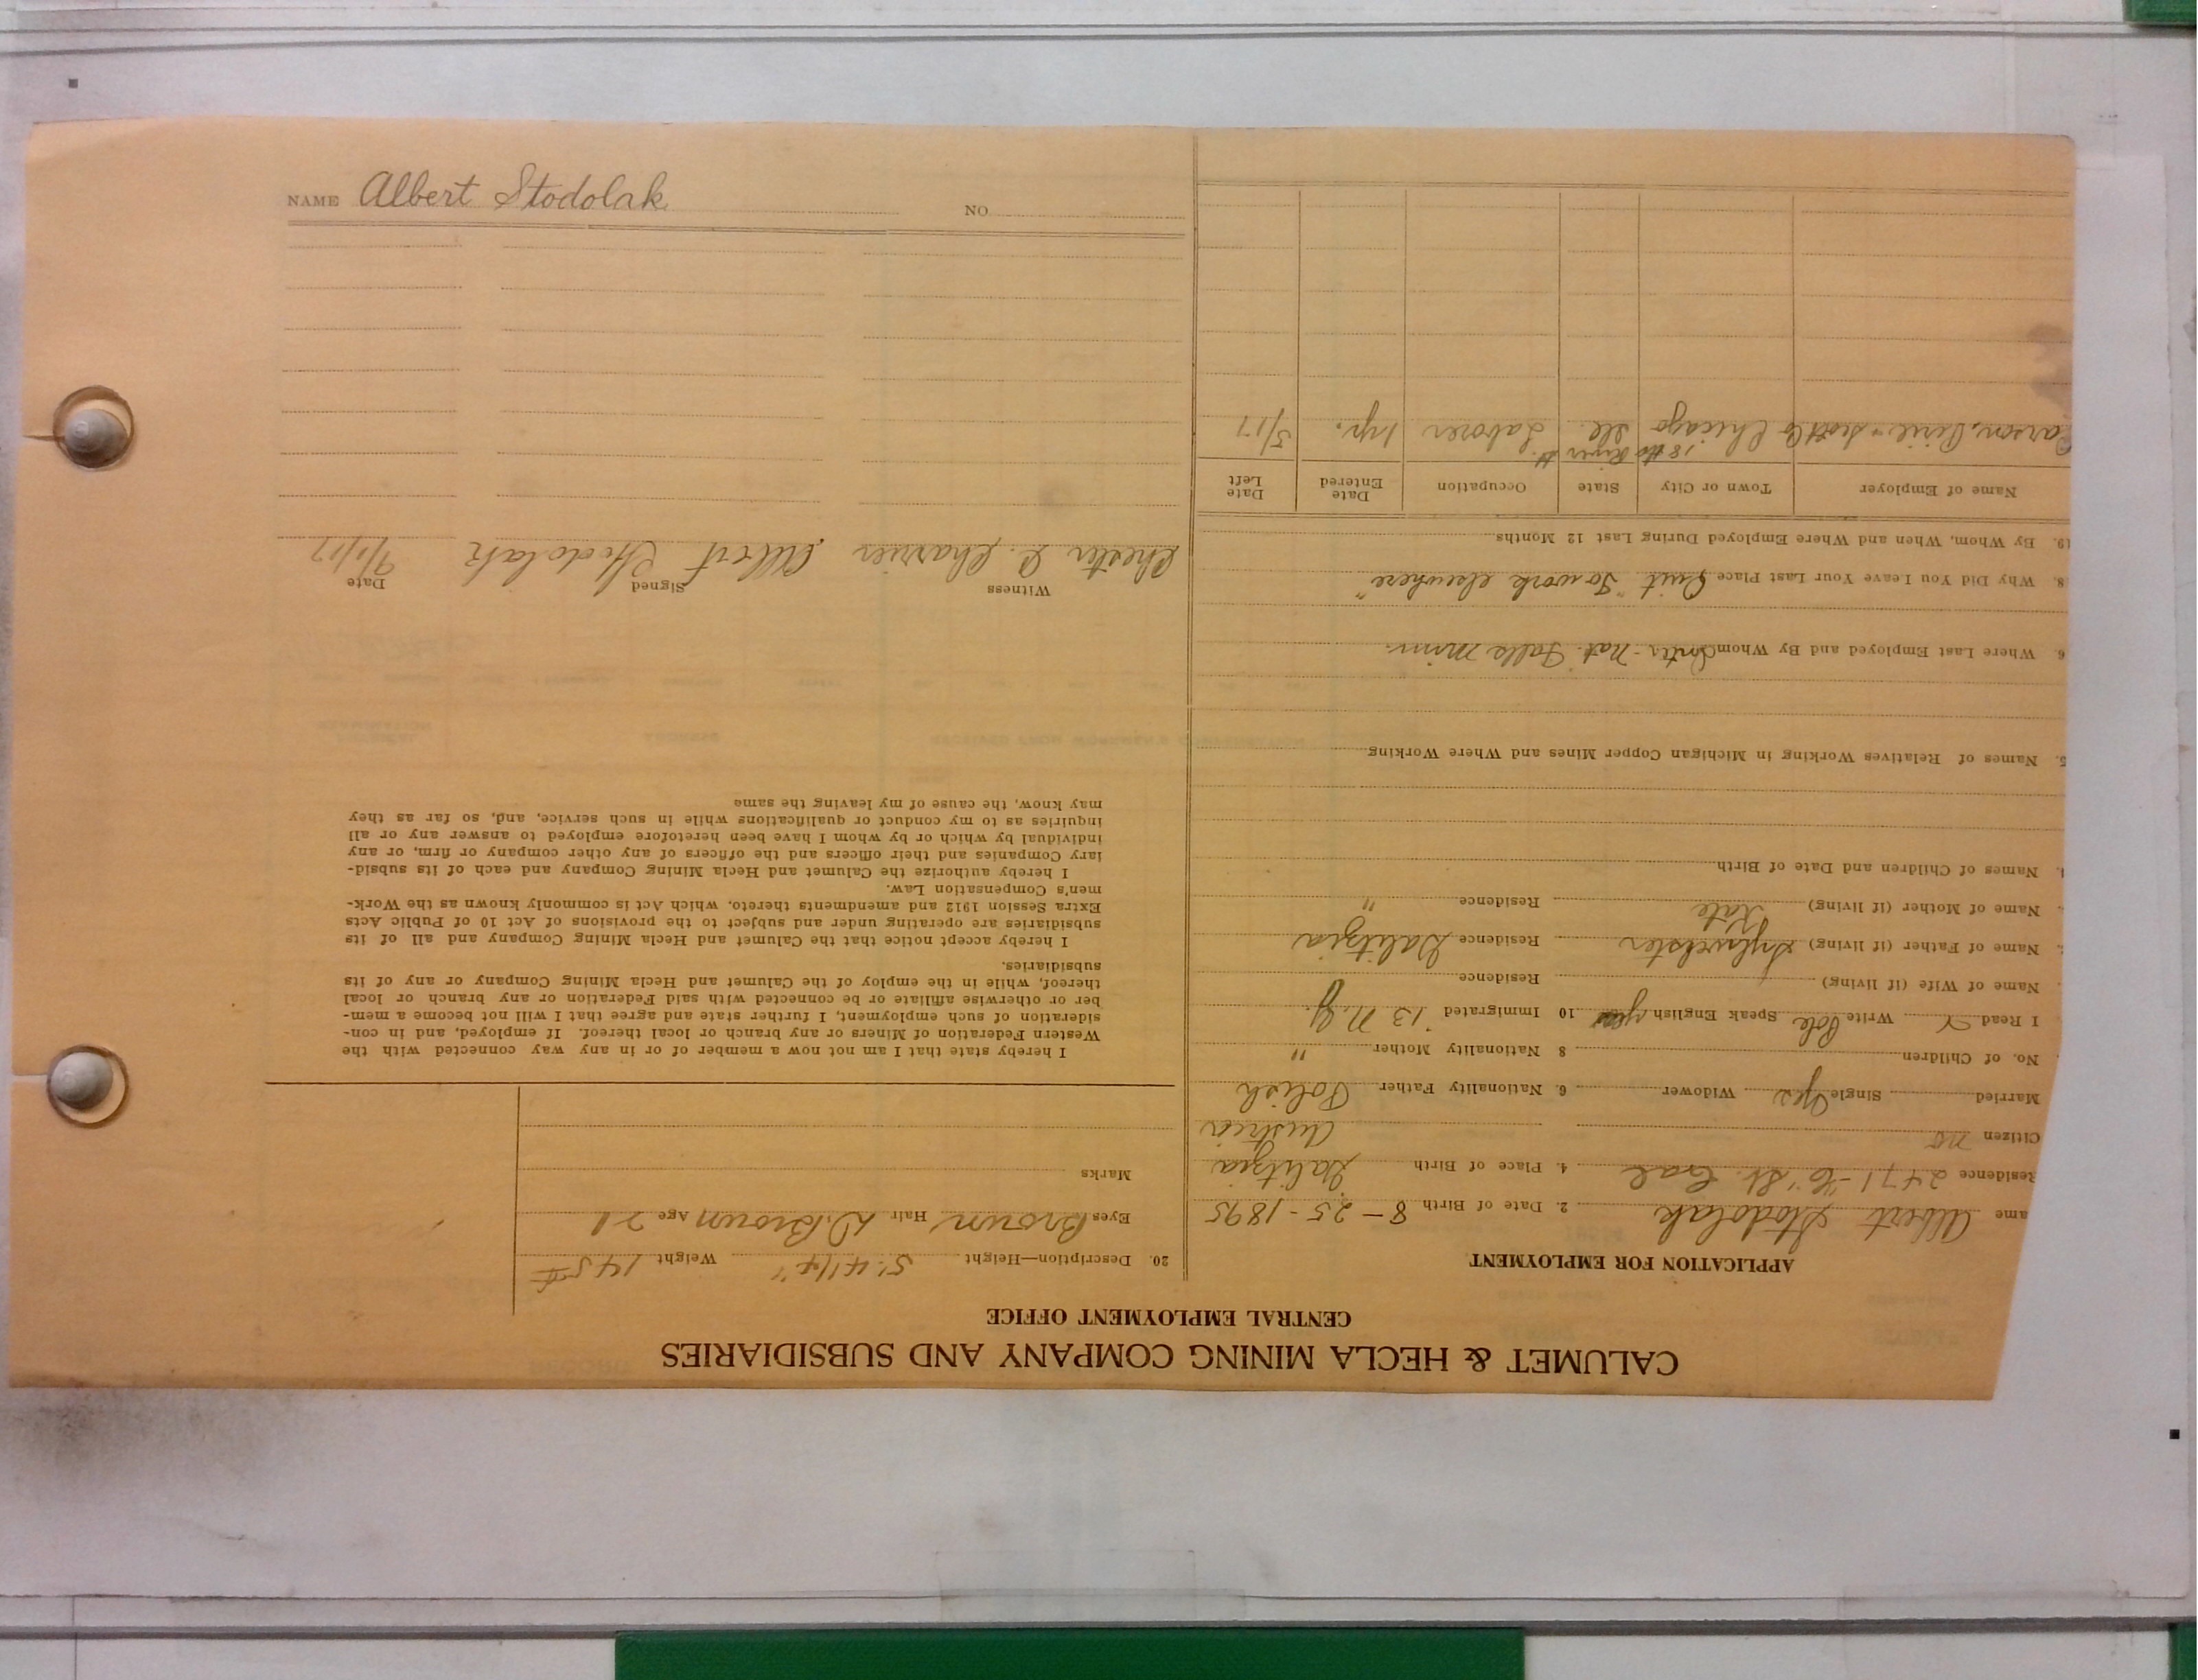 CALUMET & HECLA MINING COMPANY AND SUBSIDIARIES
CENTRAL EMPLOYMENT OFFICE
APPLICATION FOR EMPLOYMENT
ame Albert Stodolak 2. Date of Birth 8-25-1895
Residence 2471 - "C" St. Cal 4. Place of Birth Galitzia
Citizen no Austria
Married Single Yes Widower 6. Nationality Father Polish
No. of Children 8 Nationality Mother "
I Read Y Write Pole Speak English yes 10 Immigrated '13 N.Y.
Name of Wife (if living) Residence
Name of Father (if living) Sylwester Residence Galitzia
Name of Mother (if living) Kate Residence "
Names of Children and Date of Birth
5. Names of Relatives Working in Michigan Copper Mines and Where Working
6. Where Last Employed and By Whom Inter-Nat. Falls Minn.
8. Why Did You Leave Your Last Place Quit "To work elsewhere"
19. By Whom, When and Where Employed During Last 12 Months
Name of Employer Town or City State Occupation Date Entered Date Left
18th River St.
Carson, Pirie & Scott Co Chicago Ill. Laborer 1 yr. 3/17
20. Description—Height 5' 4 1/4" Weight 145#
Eyes Brown Hair D. Brown Age 21
Marks
I hereby state that I am not now a member of or in any way connected with the
Western Federation of Miners or any branch or local thereof. If employed, and in con-
sideration of such employment, I further state and agree that I will not become a mem-
ber or otherwise affiliate or be connected with said Federation or any branch or local
thereof, while in the employ of the Calumet and Hecla Mining Company or any of its
subsidiaries.
I hereby accept notice that the Calumet and Hecla Mining Company and all of its
subsidiaries are operating under and subject to the provisions of Act 10 of Public Acts
Extra Session 1912 and amendments thereto, which Act is commonly known as the Work-
men's Compensation Law.
I hereby authorize the Calumet and Hecla Mining Company and each of its subsid-
iary Companies and their officers and the officers of any other company or firm, or any
individual by which or by whom I have been heretofore employed to answer any or all
inquiries as to my conduct or qualifications while in such service, and, so far as they
may know, the cause of my leaving the same
Witness Signed Date
Chester C. Charrier Albert Stodolak 9/1/17
NAME Albert Stodolak NO